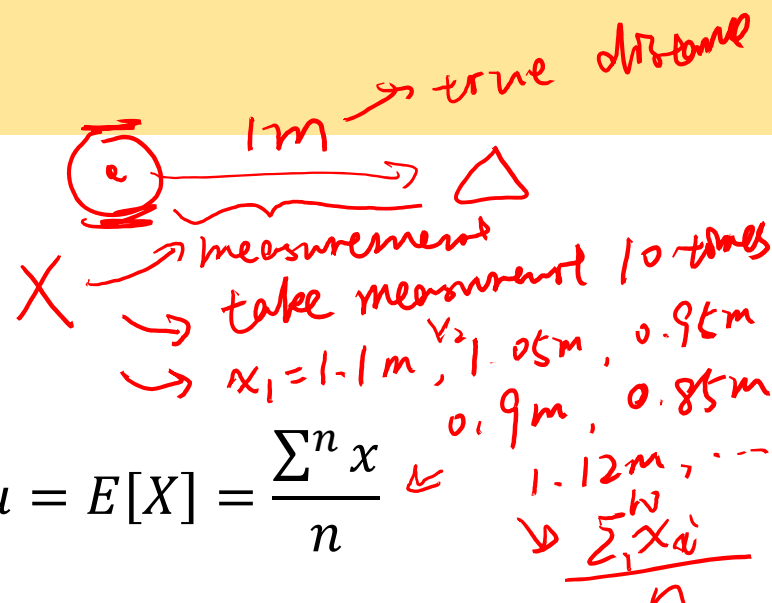 1m → true distance
X → measurement
→ take measurement 10 times
→ x₁ = 1.1m, 1.05m, 0.95m
0.9m, 0.85m
1.12m, ...
μ = E[X] = \frac{\sum^n x}{n}
\frac{\sum_1^{10} x_i}{n}